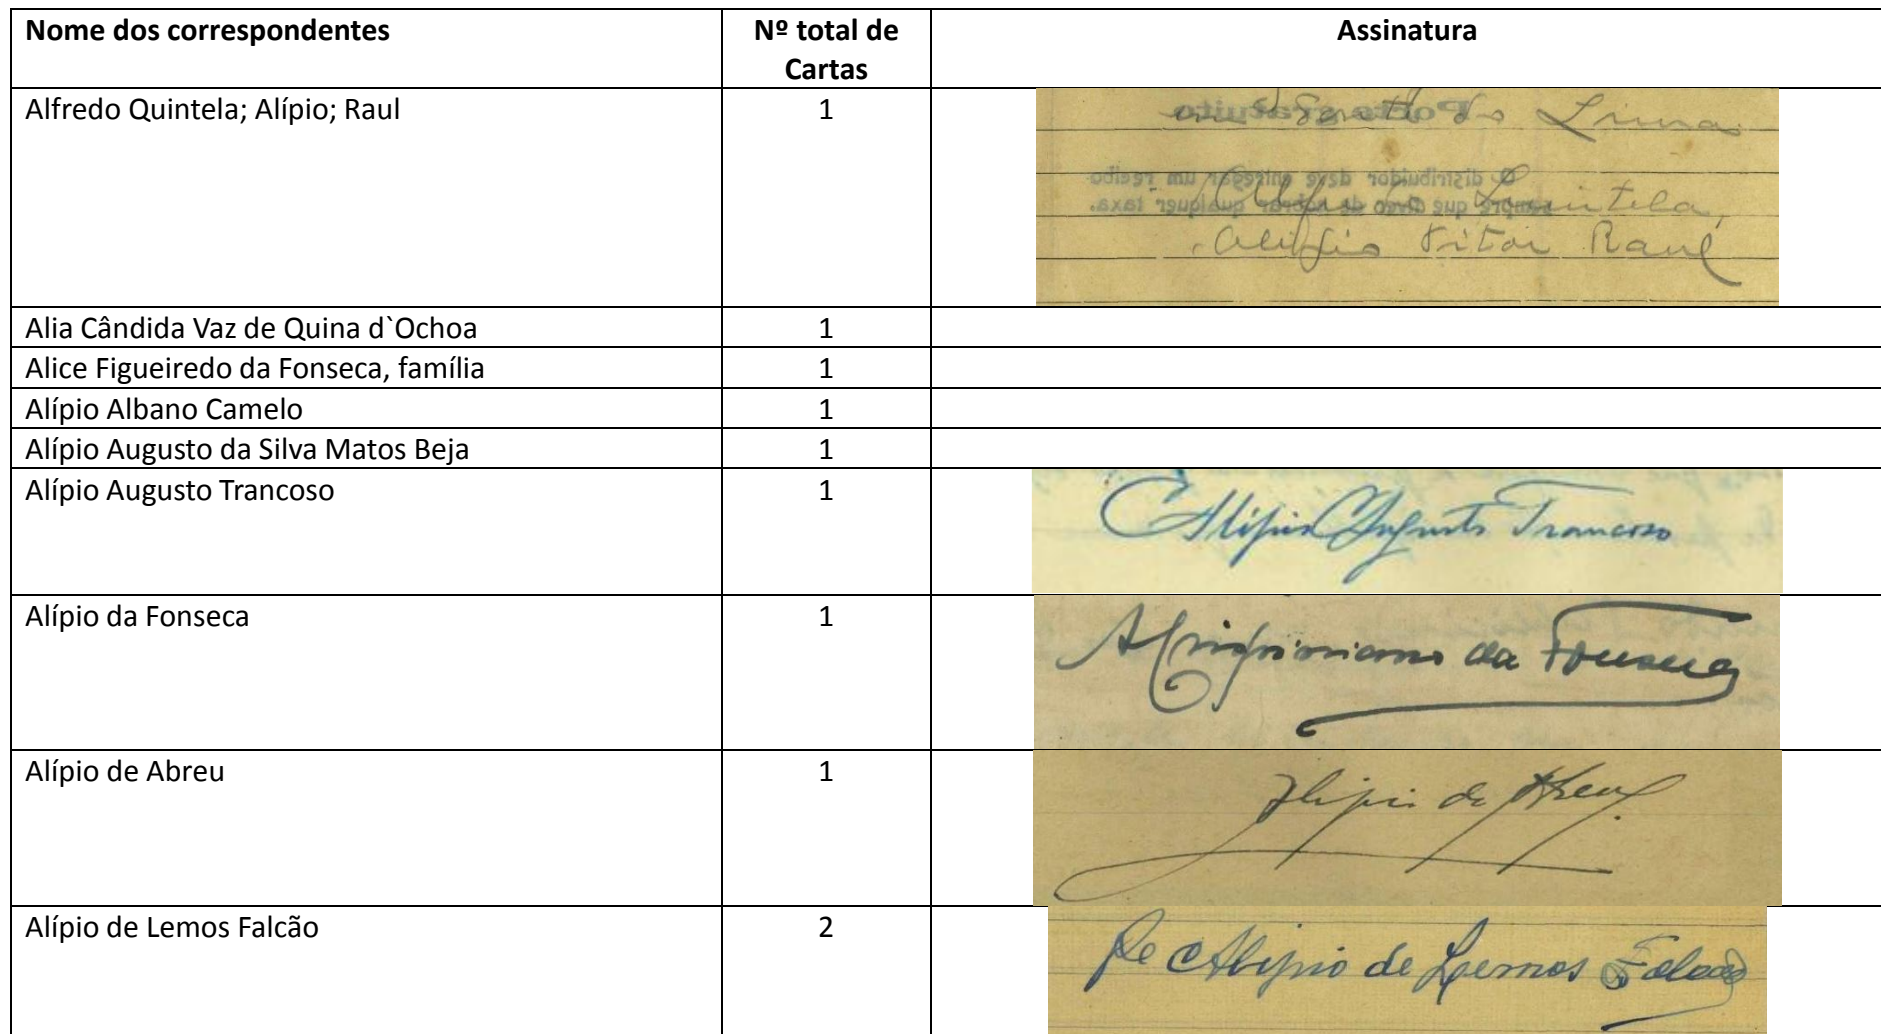 Nome dos correspondentes
Nº total de
Cartas
Assinatura
Alfredo Quintela; Alípio; Raul
1
Porte gratuito
Limas
O distribuidor deve entregar um recibo
sempre que deva de cobrar qualquer taxa.
Quintela,
Alipio Vitor Raul
Alia Cândida Vaz de Quina d`Ochoa
1
Alice Figueiredo da Fonseca, família
1
Alípio Albano Camelo
1
Alípio Augusto da Silva Matos Beja
1
Alípio Augusto Trancoso
1
Alípio Augusto Trancoso
Alípio da Fonseca
1
da Fonseca
Alípio de Abreu
1
Alipio de Abreu
Alípio de Lemos Falcão
2
Pe Alipio de Lemos Falcão